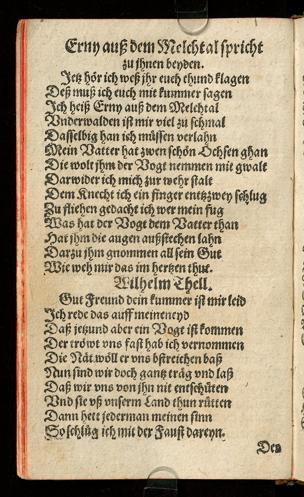 Erny auß dem Melchtal spricht
zu jhnen beyden.
Jetz hör ich weß jhr euch thund klagen
Deß muß ich euch mit kummer sagen
Jch heiß Erny auß dem Melchtal
Vnderwalden ist mir viel zu schmal
Dasselbig han ich müssen verlahn
Mein Vatter hat zwen schön Ochsen ghan
Die wolt jhm der Vogt nemmen mit gwalt
Darwider ich mich zur wehr stalt
Dem Knecht ich ein finger entzwey schlug
Zu fliehen gedacht ich wer mein fug
Was hat der Vogt dem Vatter than
Hat jhm die augen außstechen lahn
Darzu jhm gnommen all sein Gut
Wie weh mir das im hertzen thut.
Wilhelm Thell.
Gut Freund dein kummer ist mir leid
Jch rede das auff meinen eyd
Daß jetzund aber ein Vogt ist kommen
Der tröwt vns fast hab ich vernommen
Die Nät wöll er vns bstreichen baß
Nun sind wir doch gantz träg vnd laß
Daß wir vns von jhn nit entschüten
Vnd sie vß vnserm Land thun rütten
Dann hett jederman meinen sinn
So schlüg ich mit der Faust dareyn.
Den